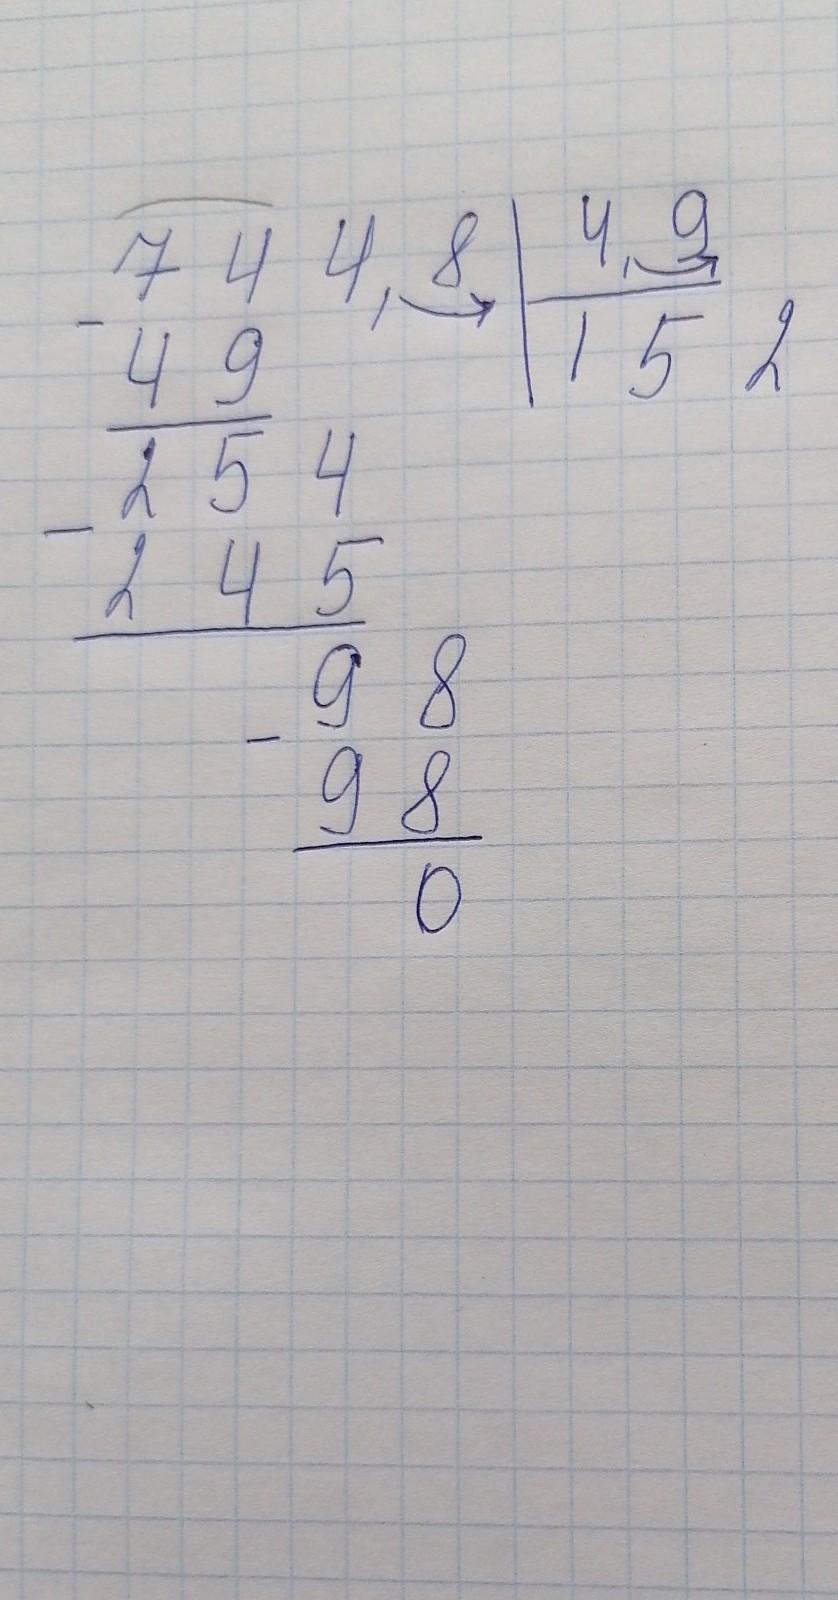 744,8 | 4,9
- 49 | 152
254
- 245
98
- 98
0